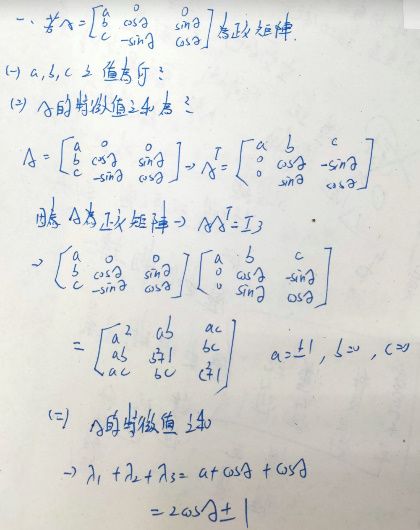 一、若A=[a 0 0
b cosθ sinθ
c -sinθ cosθ]為正交矩陣.
(一) a,b,c之值為何?
(二) A的特徵值之和為?
A=[a 0 0
b cosθ sinθ
c -sinθ cosθ]→A^T=[a b c
0 cosθ -sinθ
0 sinθ cosθ]
因為A為正交矩陣→AA^T=I3
→[a 0 0
b cosθ sinθ
c -sinθ cosθ][a b c
0 cosθ -sinθ
0 sinθ cosθ]
=[a² ab ac
ab b²+1 bc
ac bc c²+1] a=±1, b=0, c=0
(二) A的特徵值之和
→λ1+λ2+λ3=a+cosθ+cosθ
=2cosθ±1